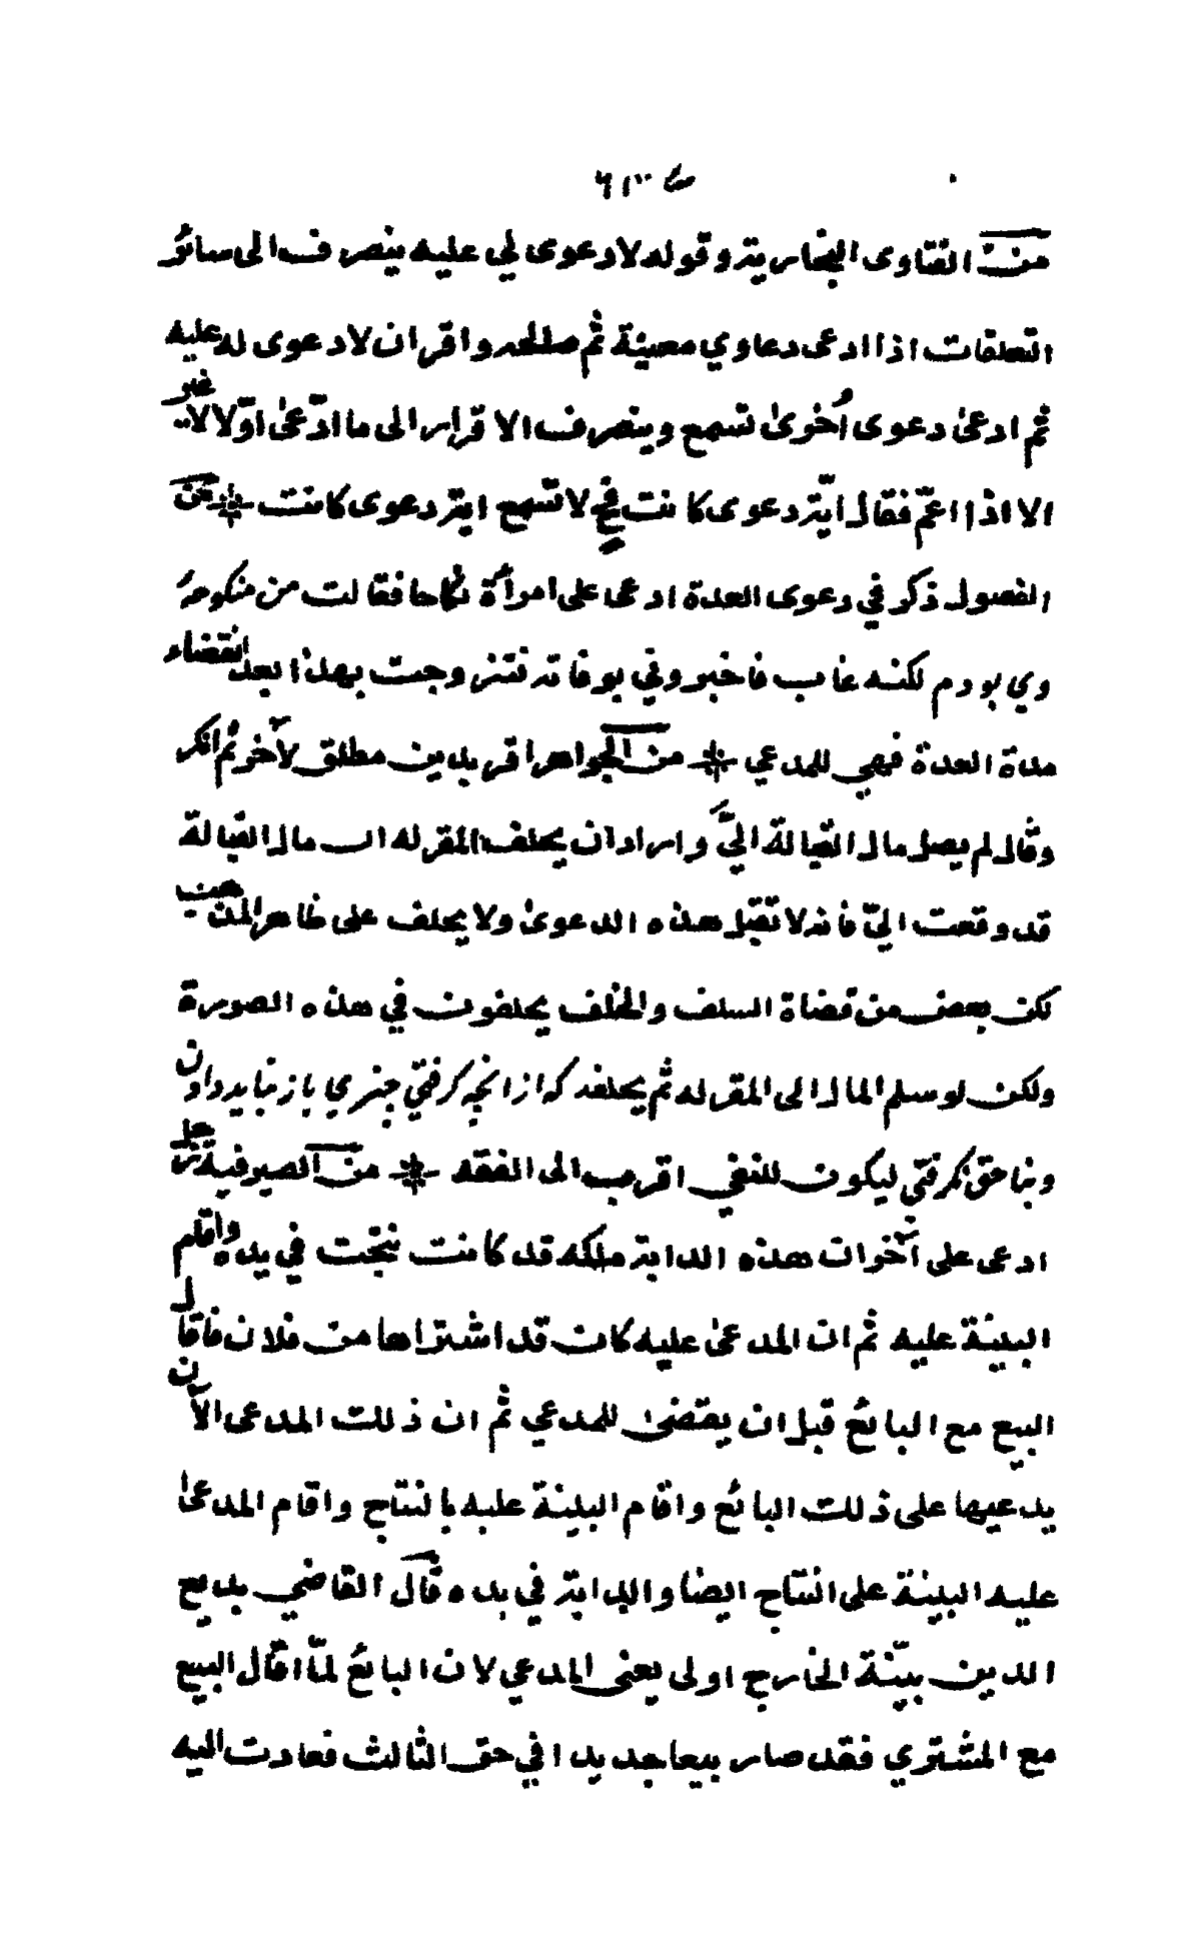 من الفتاوى البخارية وقوله لا دعوى لي عليه ينصرف الى سائر
التعلقات اذا ادعى دعاوي معينة ثم صالحه واقر ان لا دعوى له عليه
ثم ادعى دعوى اُخرى تسمع وينصرف الاقرار الى ما ادّعى اوّلا لا غير
الا اذا اعمّ فقال ايّة دعوى كانت فح لا تسمع اية دعوى كانت * من
الفصول ذكر في دعوى العدة ادعى على امرأة نكاحا فقالت من منكوحهٔ
وي بودم لكنه غاب فاخبروني بوفاته فتزوجت بهذا بعد انقضاء
مدة العدة فهي للمدعي * من الجواهر اقر بدين مطلق لآخر ثم انكر
وقال لم يصل مال القبالة اليّ واراد ان يحلف المقر له ان مال القبالة
قد وقعت اليّ فانه لا تقبل هذه الدعوى ولا يحلف على ظاهر المذهب
لكن بعض من قضاة السلف والخلف يحلفون في هذه الصورة
ولكن لو سلم المال الى المقر له ثم يحلفه كه از انچه كرفتي چيزي باز نبايد دادن
وبناحق نكرفتي ليكون للنفي اقرب الى الفقه * من الصيرفية رجل
ادعى على آخر ان هذه الدابة ملكه قد كانت نتجت في يده واقام
البينة عليه ثم ان المدعى عليه كان قد اشتراها من فلان فاقال
البيع مع البائع قبل ان يقضى للمدعي ثم ان ذلك المدعى الآن
يدعيها على ذلك البائع واقام البينة عليه بالنتاج واقام المدعى
عليه البينة على النتاج ايضا والدابة في يده قال القاضي بديع
الدين بيّنة الخارج اولى يعنى المدعي لان البائع لمّا اقال البيع
مع المشتري فقد صار بيعا جديدا في حق الثالث فعادت اليه